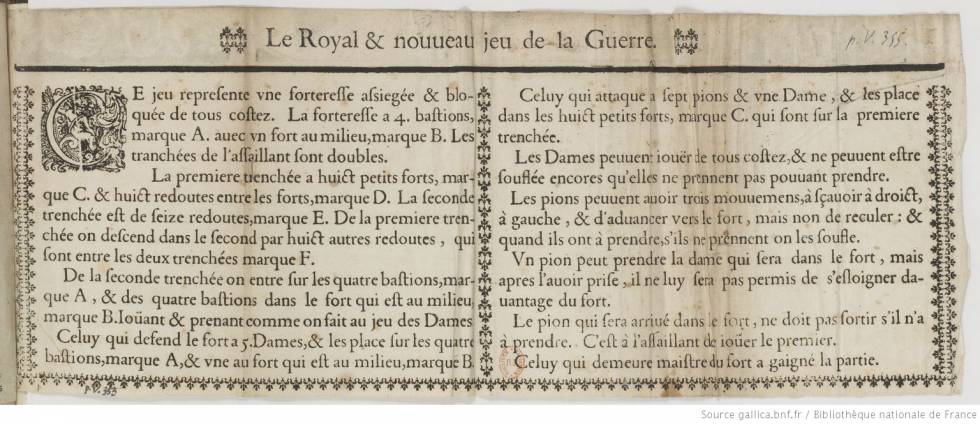 Le Royal & nouueau jeu de la Guerre.
p. V. 355.
CE jeu represente vne forteresse assiegée & blo-
quée de tous costez. La forteresse a 4. bastions,
marque A. auec vn fort au milieu, marque B. Les
tranchées de l'assaillant sont doubles.
La premiere trenchée a huict petits forts, mar-
que C. & huict redoutes entre les forts, marque D. La seconde
trenchée est de seize redoutes, marque E. De la premiere tren-
chée on descend dans le second par huict autres redoutes, qui
sont entre les deux trenchées marque F.
De la seconde trenchée on entre sur les quatre bastions, mar-
que A, & des quatre bastions dans le fort qui est au milieu
marque B. Ioüant & prenant comme on fait au jeu des Dames
Celuy qui defend le fort a 5. Dames, & les place sur les quatre
bastions, marque A, & vne au fort qui est au milieu, marque B.
Celuy qui attaque a sept pions & vne Dame, & les place
dans les huict petits forts, marque C. qui sont sur la premiere
trenchée.
Les Dames peuuent ioüer de tous costez, & ne peuuent estre
souflée encores qu'elles ne prennent pas pouuant prendre.
Les pions peuuent auoir trois mouuemens, à sçauoir à droict,
à gauche, & d'aduancer vers le fort, mais non de reculer: &
quand ils ont à prendre, s'ils ne prennent on les soufle.
Vn pion peut prendre la dame qui sera dans le fort, mais
apres l'auoir prise, il ne luy sera pas permis de s'esloigner da-
uantage du fort.
Le pion qui sera arriué dans le fort, ne doit pas sortir s'il n'a
à prendre. C'est à l'assaillant de ioüer le premier.
Celuy qui demeure maistre du fort a gaigné la partie.
p. V. 353
Source gallica.bnf.fr / Bibliothèque nationale de France